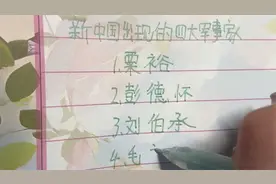 新中国出现的四大军事家
1.粟裕
2.彭德怀
3.刘伯承
4.毛